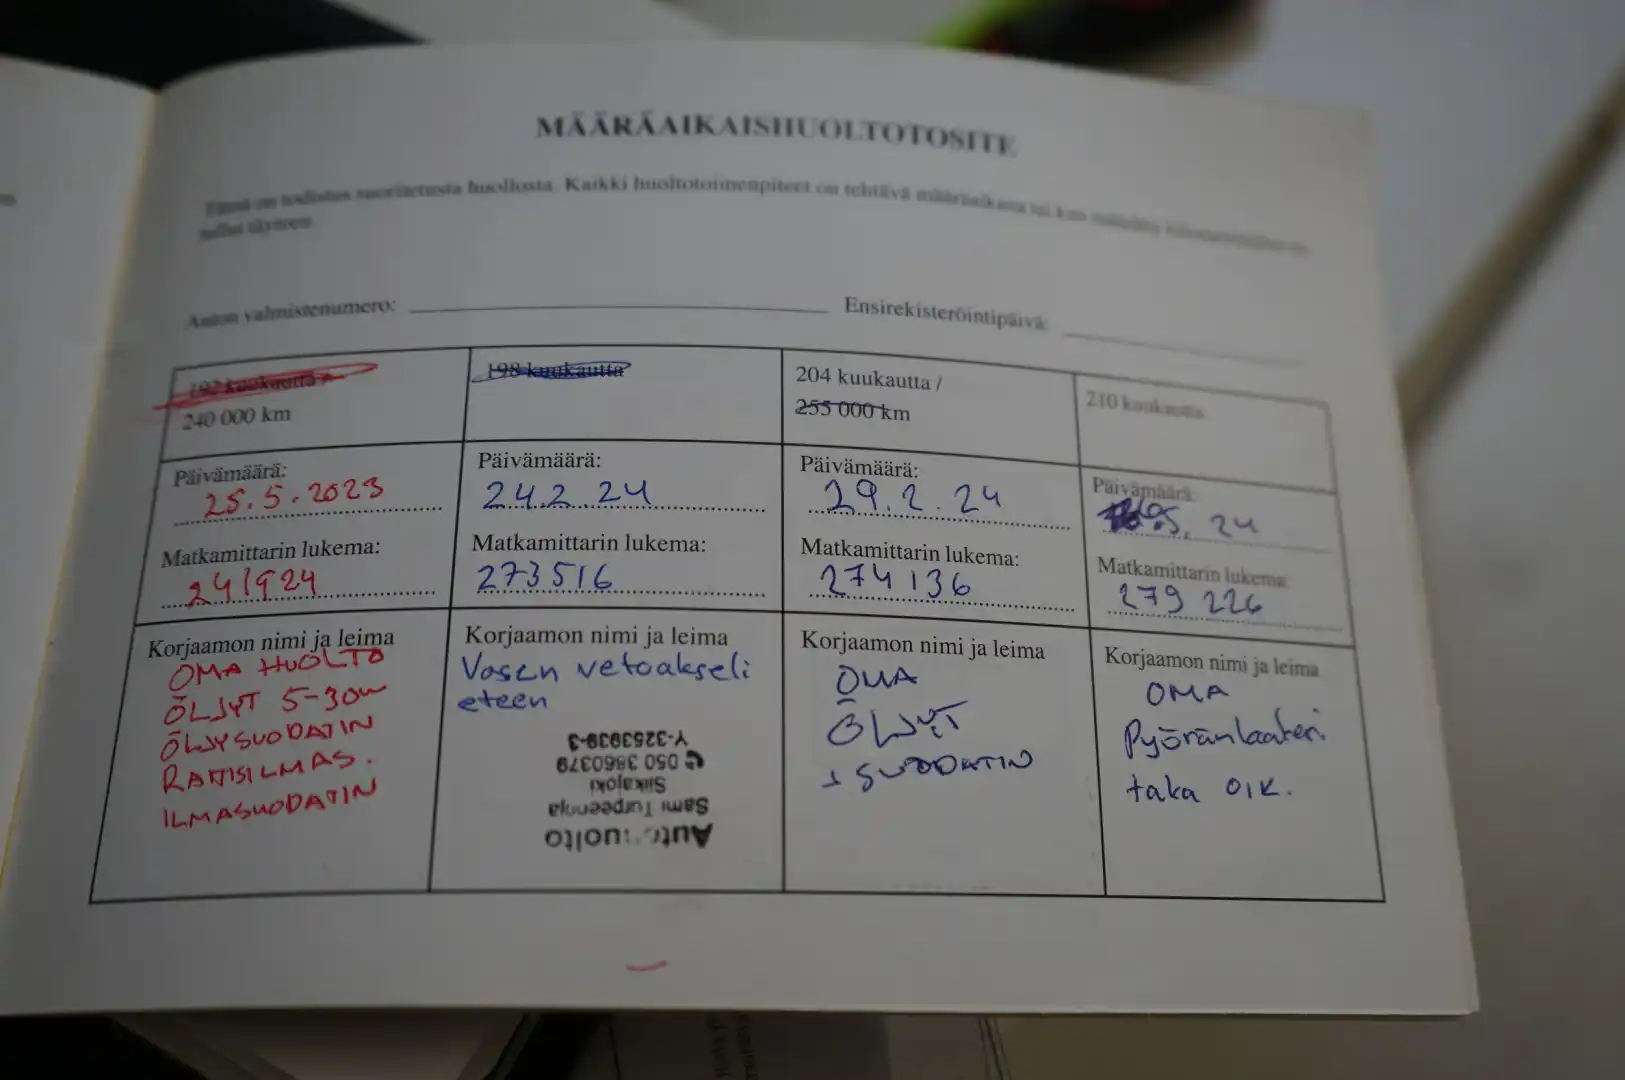 MÄÄRÄAIKAISHUOLTOTOSITE
Tämä on todistus suoritetusta huollosta. Kaikki huoltotoimenpiteet on tehtävä määräaikana tai kun
tullut täyteen.
Auton valmistenumero:
Ensirekisteröintipäivä:
192 kuukautta /
240 000 km
Päivämäärä:
25.5.2023
Matkamittarin lukema:
241924
Korjaamon nimi ja leima
OMA HUOLTO
ÖLJYT 5-30W
ÖLJYSUODATIN
RAITISILMAS.
ILMASUODATIN
198 kuukautta
Päivämäärä:
24.2.24
Matkamittarin lukema:
273516
Korjaamon nimi ja leima
Vasen vetoakseli
eteen
Autohuolto
Sami Turpeenoja
Siikajoki
050 3860379
Y-3253939-3
204 kuukautta /
255 000 km
Päivämäärä:
29.2.24
Matkamittarin lukema:
274136
Korjaamon nimi ja leima
OMA
ÖLJYT
+ SUODATIN
210 kuukautta
Päivämäärä:
5. 24
Matkamittarin lukema:
279 226
Korjaamon nimi ja leima
OMA
Pyöränlaakeri
taka OIK.